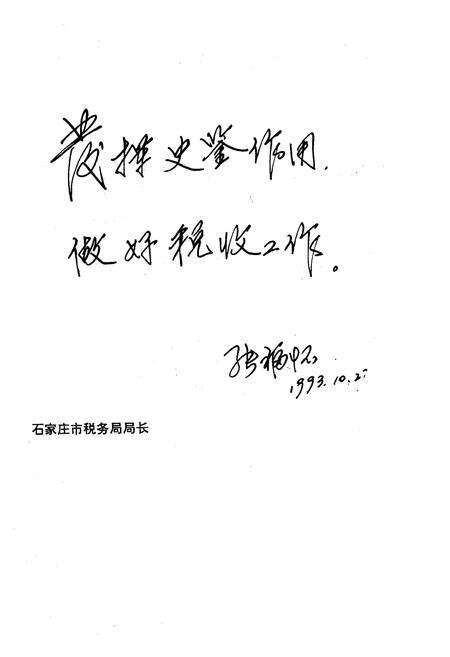 發挥史鉴作用，
做好税收工作。
张福怀
1993.10.2
石家庄市税务局局长